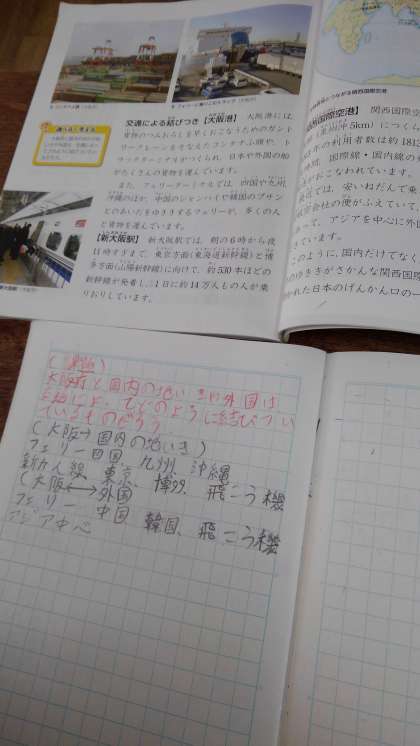 交通による結びつき【大阪港】 大阪港には
貨物のつみおろしを早くおこなうためのガント
リークレーンをそなえたコンテナふ頭や、ト
ラックターミナルがつくられ、日本や外国の船
がたくさんの貨物を運んでいます。
また、フェリーターミナルでは、四国や九州、
沖縄のほか、中国のシャンハイや韓国のプサン
とのあいだをゆききするフェリーが、多くの人
と貨物を運んでいます。
【新大阪駅】 新大阪駅では、朝の6時から夜
11時すぎまで、東京方面(東海道新幹線)と博
多方面(山陽新幹線)に向けて、約530本ほどの
新幹線が発着し、1日に約14万人もの人が乗
りおりしています。
関西国際空港】 関西国際空
5km)につく
年の利用者数は約18
国際線・国内線の
おこなわれています。
は、安いねだんで乗
航空会社の便がふえていて、
って、アジアを中心に外国
ています。
このように、国内だけでなく
のゆききがさかんな関西国際
れた日本のげんかん口の一
大阪府と国内の地いきや外国は
どのように結びつい
ているのだろう
(大阪↔国内の地いき)
フェリー四国、九州 沖縄
新かん線 東京、博多、飛こう機
(大阪↔外国
フェリー 中国 韓国、飛こう機
アジア中心